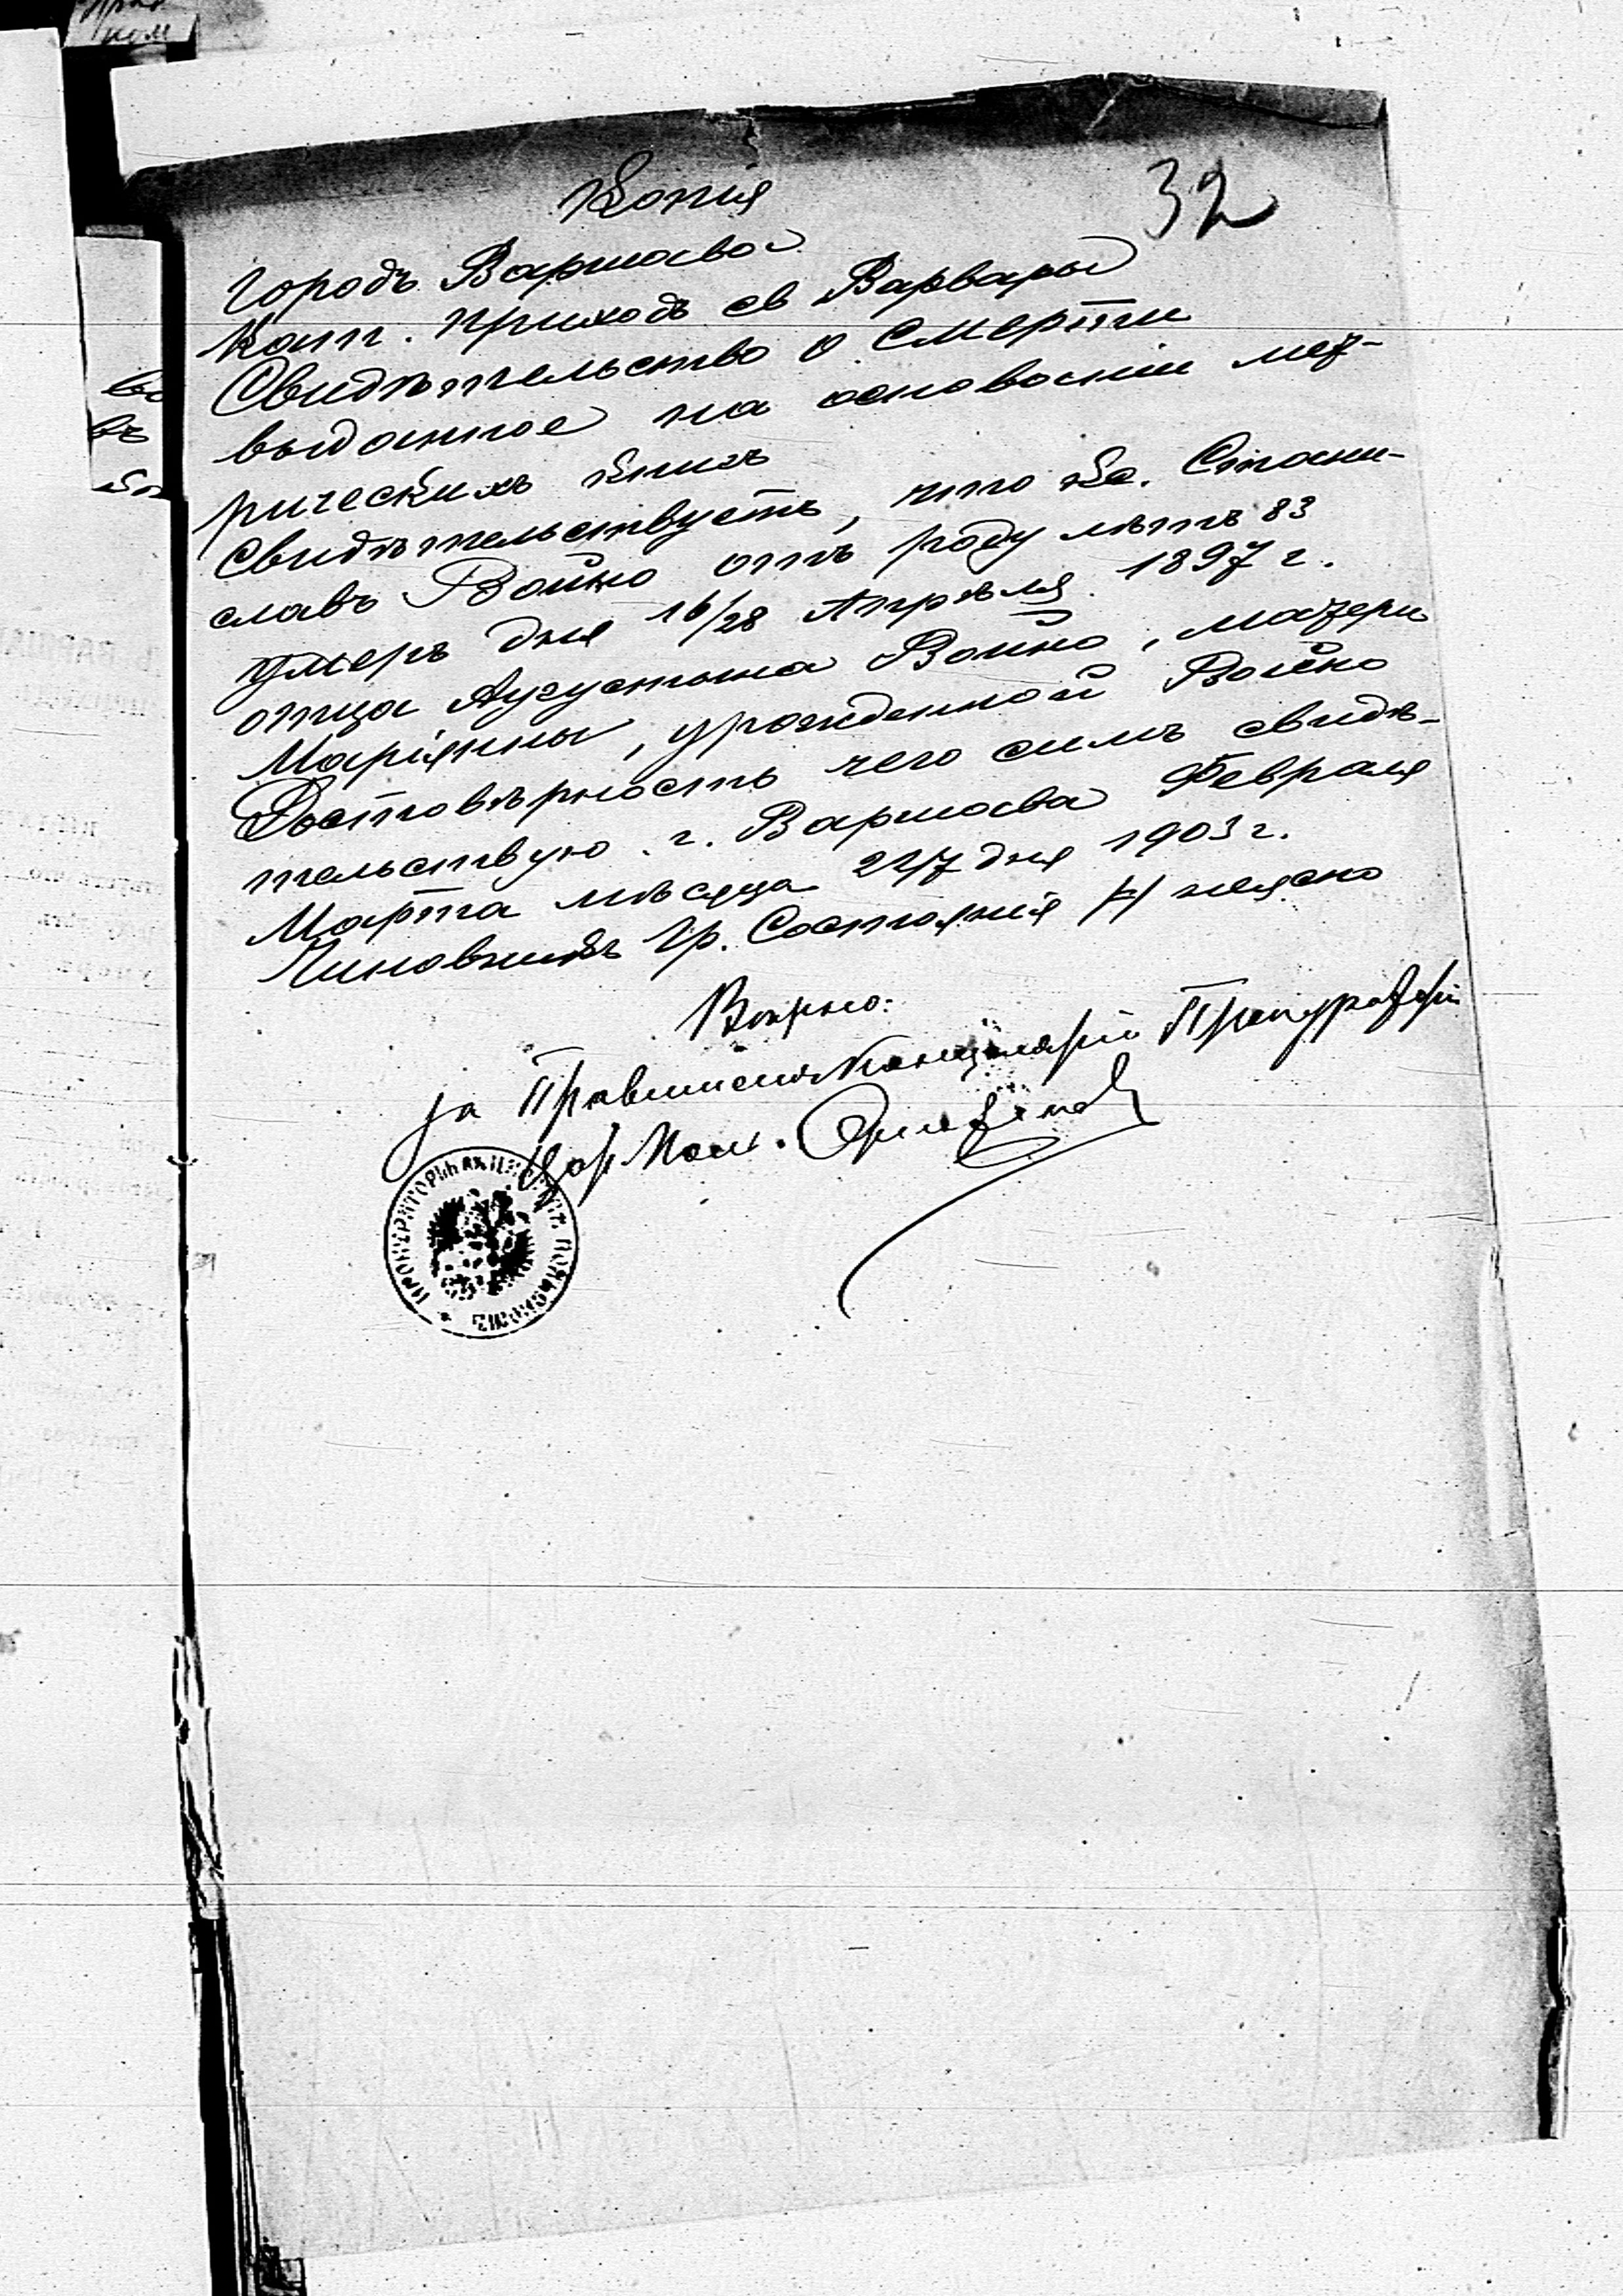 Копія
32
Городъ Варшава
Кат. приходъ св Варвары
Свидѣтельство о Смерти
выданное на основаніи мет-
рическихъ книгъ
Свидѣтельствуетъ, что Кс. Стани-
славъ Война отъ роду лѣтъ 83
умеръ дня 16/28 Апрѣля 1897 г.
отца Аугустына Война, матери
Маріянны, урожденной Война
Достовѣрность чего симъ свидѣ-
тельствую. г. Варшава Февраля
Марта мѣсяца 22/7 дня 1903 г.
Чиновникъ Гр. Состоянія /-/ неясно
Вѣрно:
за Правителя Канцеляріи Прокураторіи
Цар. Польс.